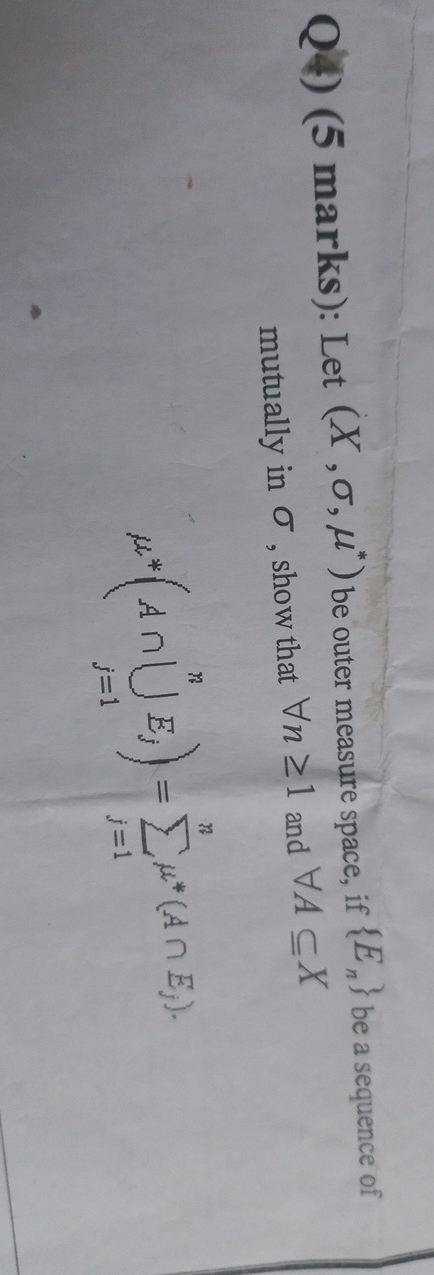 Q4) (5 marks): Let (X, σ, μ*) be outer measure space, if {Eₙ} be a sequence of
mutually in σ, show that ∀n ≥ 1 and ∀A ⊆ X
μ*(A ∩ ⋃ⁿⱼ₌₁ Eⱼ) = ∑ⁿⱼ₌₁ μ*(A ∩ Eⱼ).